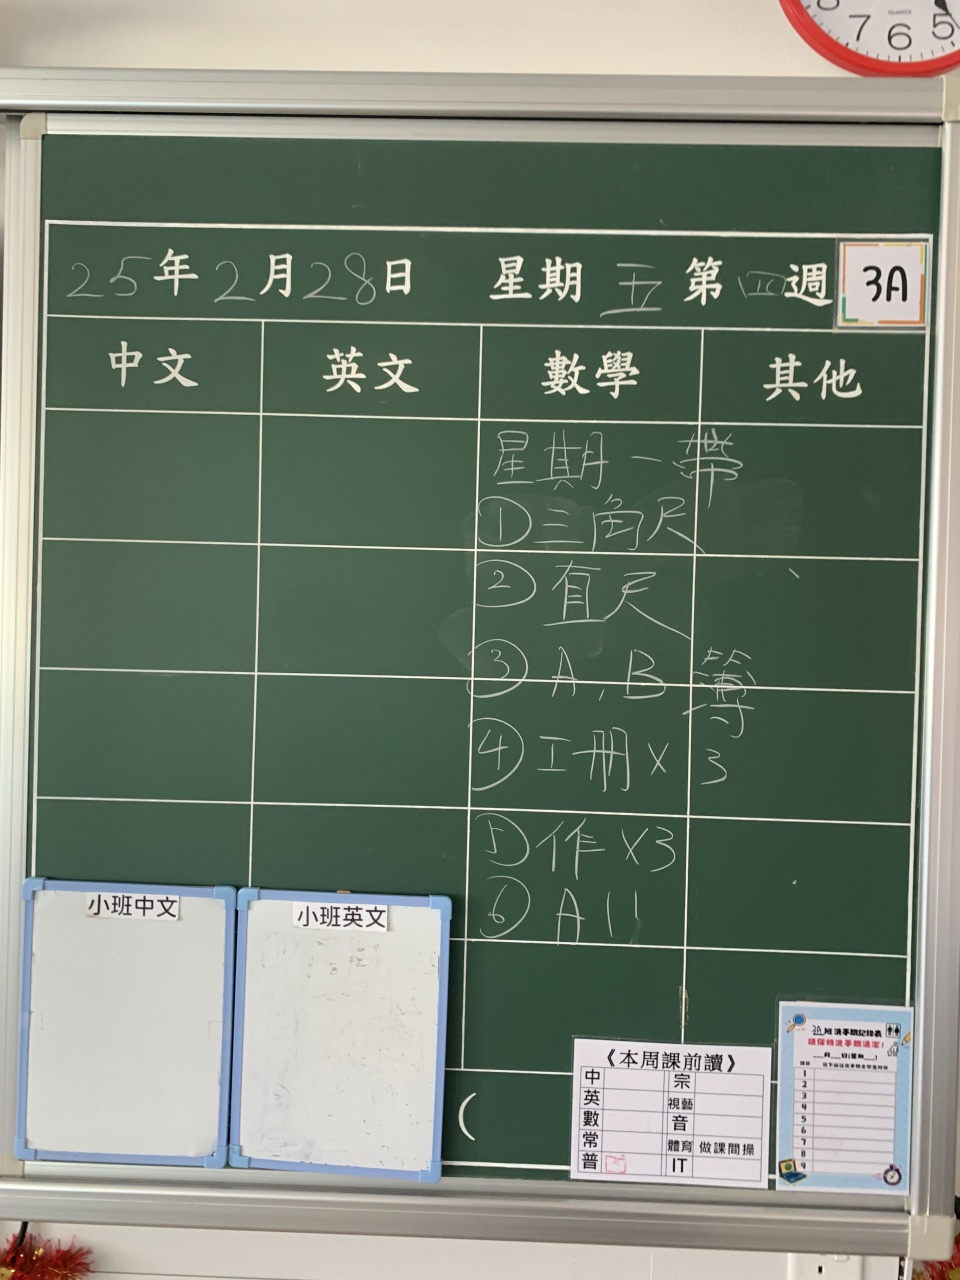 QUARTZ
8 7 6 5
25年2月28日 星期五 第四週 3A
中文 英文 數學 其他
星期一帶
①三角尺
②直尺
③A,B簿
④工冊×3
⑤作×3
⑥A11
小班中文
小班英文
(
《本周課前讀》
中 宗
英 視藝
數 音
常 體育 做課間操
普 IT
3A班洗手間記錄表
請保持洗手間清潔!
___月___日(星期___)
1
2
3
4
5
6
7
8
9